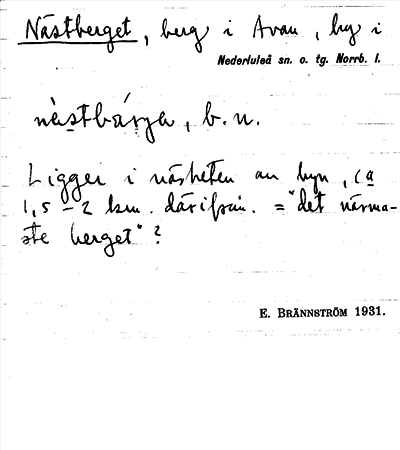 Nästberget, berg i Avan, by i
Nederluleå sn. o. tg. Norrb. l.
nä̀stbárjǝ, b. n.
Ligger i närheten av byn, ca
1,5 – 2 km. därifrån. = "det närma-
ste berget"?
E. BRÄNNSTRÖM 1931.